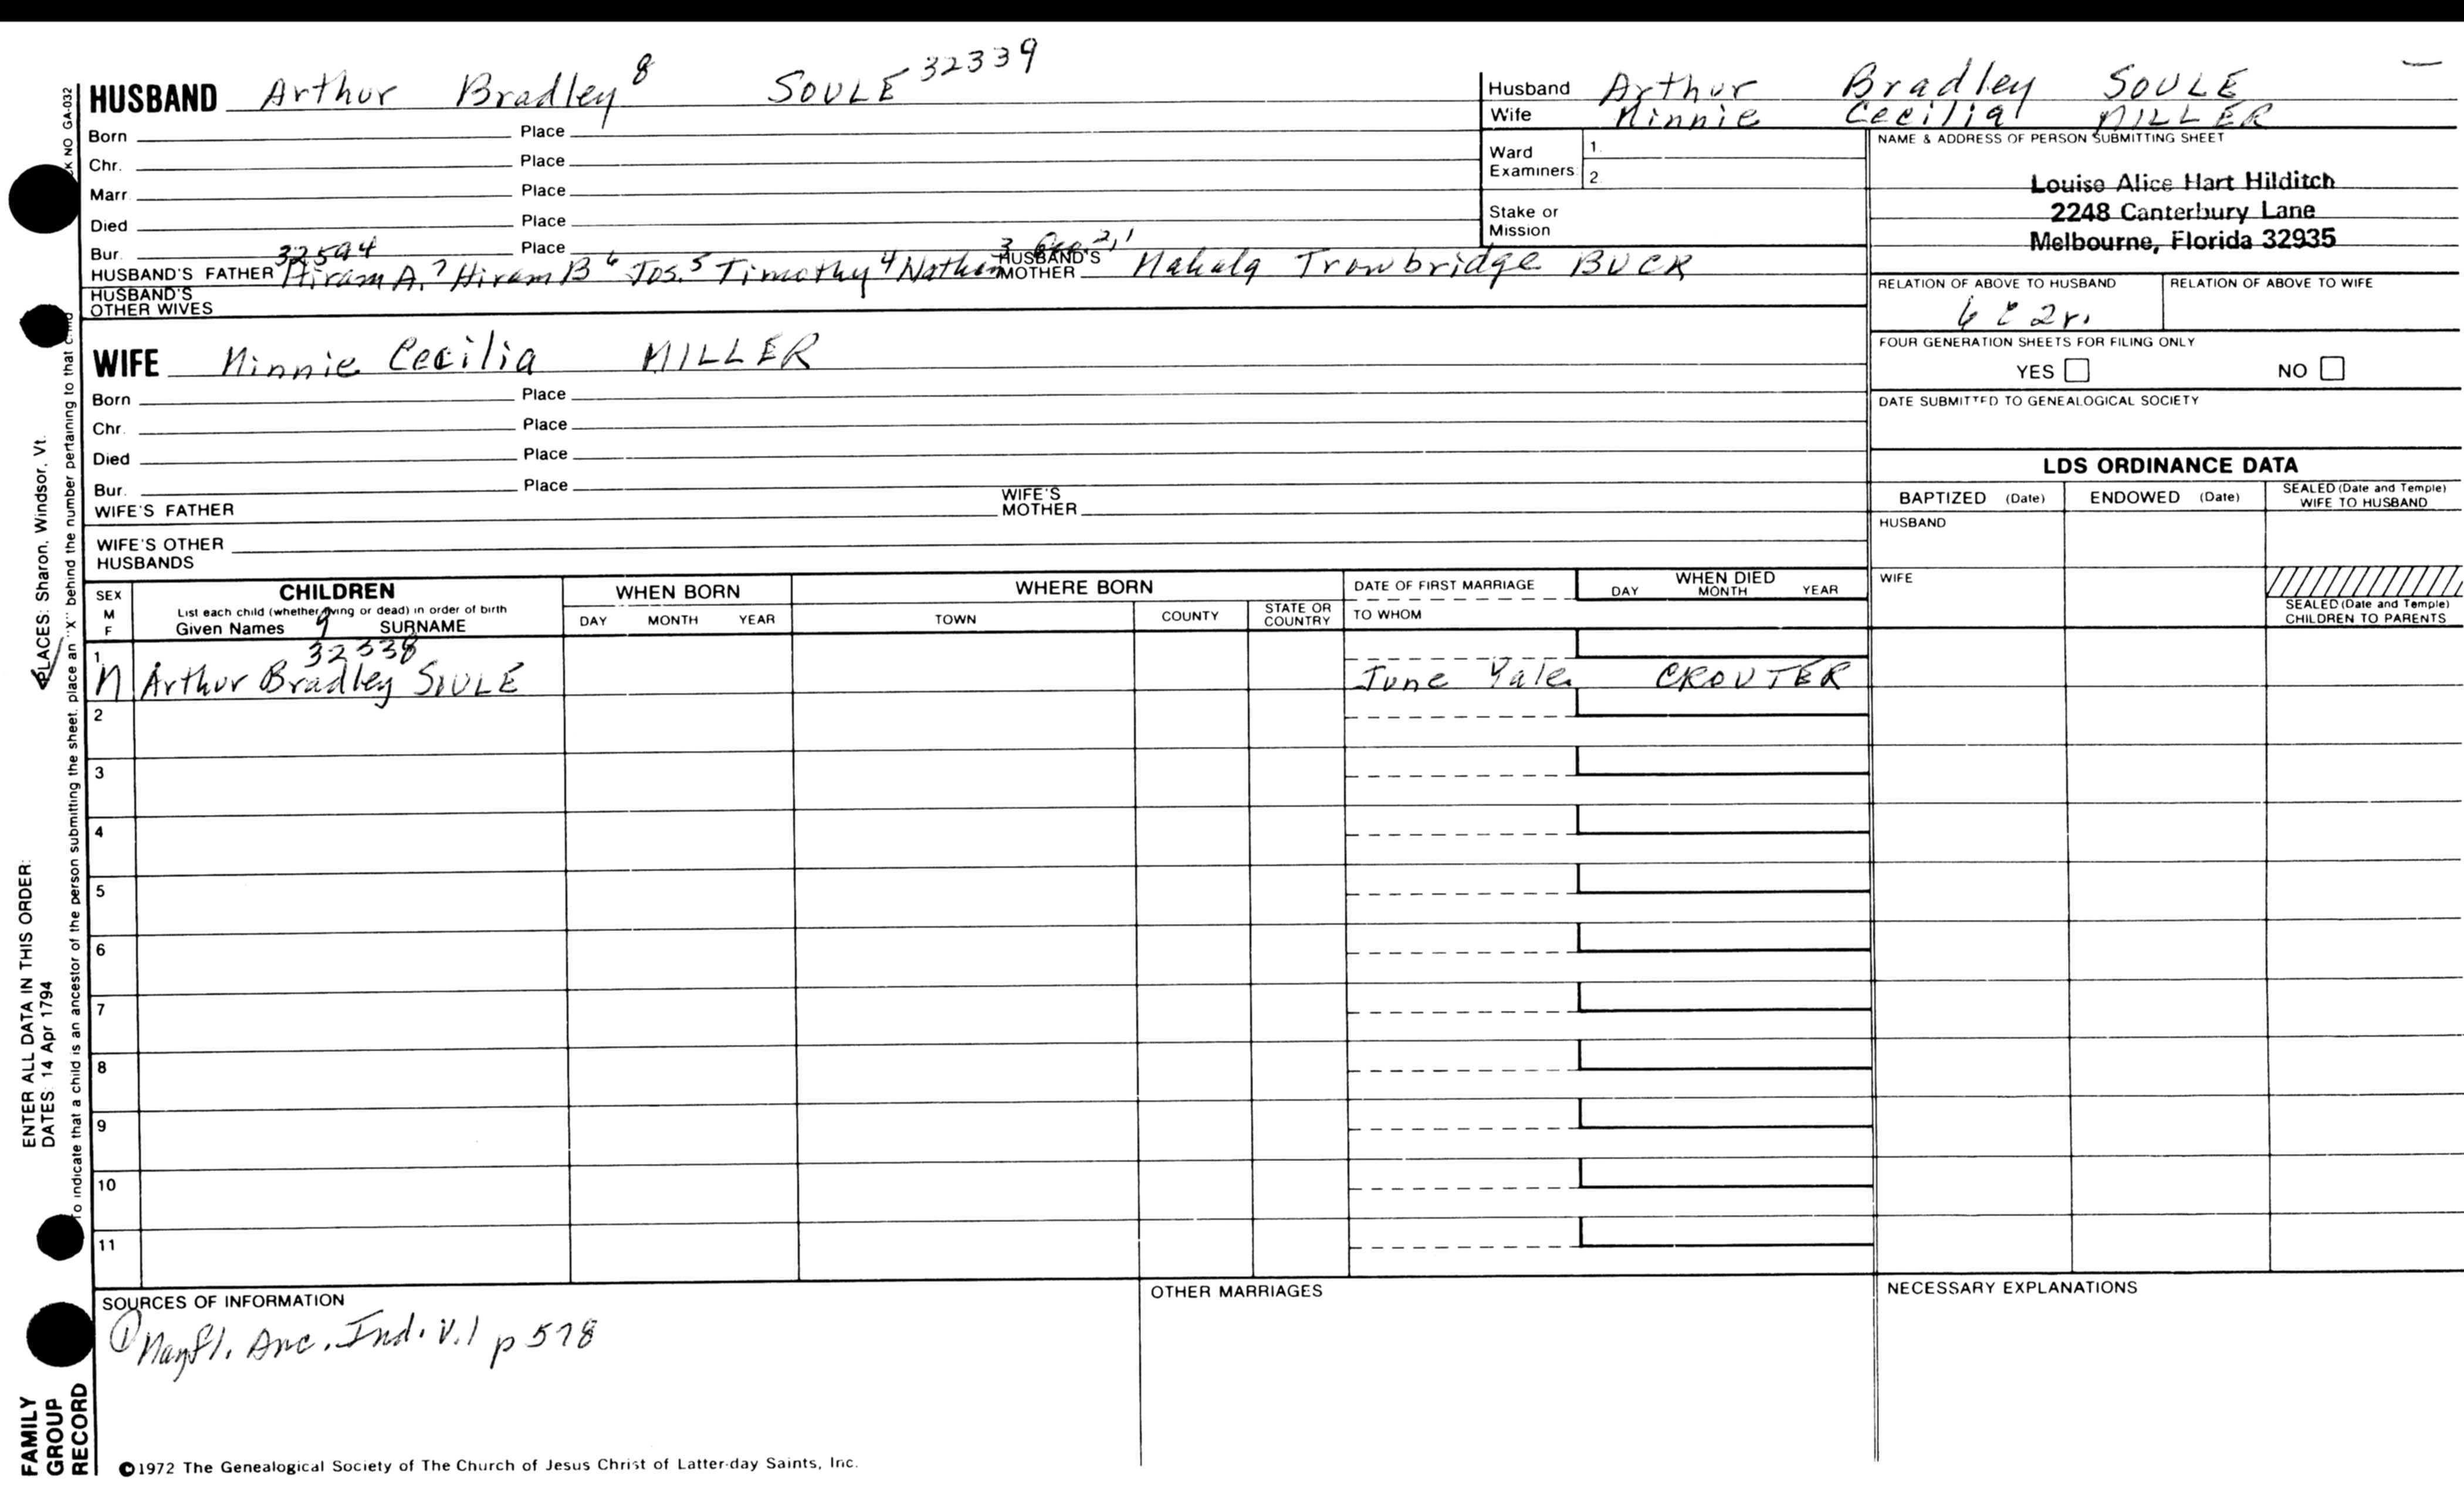 HUSBAND Arthur Bradley 8 SOULE 32339
Born Place
Chr. Place
Marr. Place
Died Place
Bur. Place
32594
HUSBAND'S FATHER Hiram A. 7 Hiram B 6 Jos. 5 Timothy 4 Nathan 3 Geo. 2, 1 HUSBAND'S MOTHER Mahala Trowbridge BUCK
HUSBAND'S OTHER WIVES
WIFE Minnie Cecilia MILLER
Born Place
Chr. Place
Died Place
Bur. Place
WIFE'S FATHER WIFE'S MOTHER
WIFE'S OTHER HUSBANDS
Husband Arthur Bradley SOULE
Wife Minnie Cecilia MILLER
Ward Examiners 1.
2.
Stake or Mission
NAME & ADDRESS OF PERSON SUBMITTING SHEET
Louise Alice Hart Hilditch
2248 Canterbury Lane
Melbourne, Florida 32935
RELATION OF ABOVE TO HUSBAND RELATION OF ABOVE TO WIFE
6 C 2r.
FOUR GENERATION SHEETS FOR FILING ONLY
YES NO
DATE SUBMITTED TO GENEALOGICAL SOCIETY
LDS ORDINANCE DATA
BAPTIZED (Date) ENDOWED (Date) SEALED (Date and Temple) WIFE TO HUSBAND
HUSBAND
WIFE
SEALED (Date and Temple) CHILDREN TO PARENTS
SEX M F
CHILDREN
List each child (whether living or dead) in order of birth
Given Names SURNAME
WHEN BORN
DAY MONTH YEAR
WHERE BORN
TOWN COUNTY STATE OR COUNTRY
DATE OF FIRST MARRIAGE
TO WHOM
WHEN DIED
DAY MONTH YEAR
9
32338
1 M Arthur Bradley SOULE June Yale CROUTER
2
3
4
5
6
7
8
9
10
11
SOURCES OF INFORMATION
① Mayfl. Anc. Ind. V.1 p 578
OTHER MARRIAGES
NECESSARY EXPLANATIONS
©1972 The Genealogical Society of The Church of Jesus Christ of Latter-day Saints, Inc.
FAMILY
GROUP
RECORD
ENTER ALL DATA IN THIS ORDER:
DATES: 14 Apr 1794
PLACES: Sharon, Windsor, Vt.
To indicate that a child is an ancestor of the person submitting the sheet, place an "X" behind the number pertaining to that child
NO GA-032